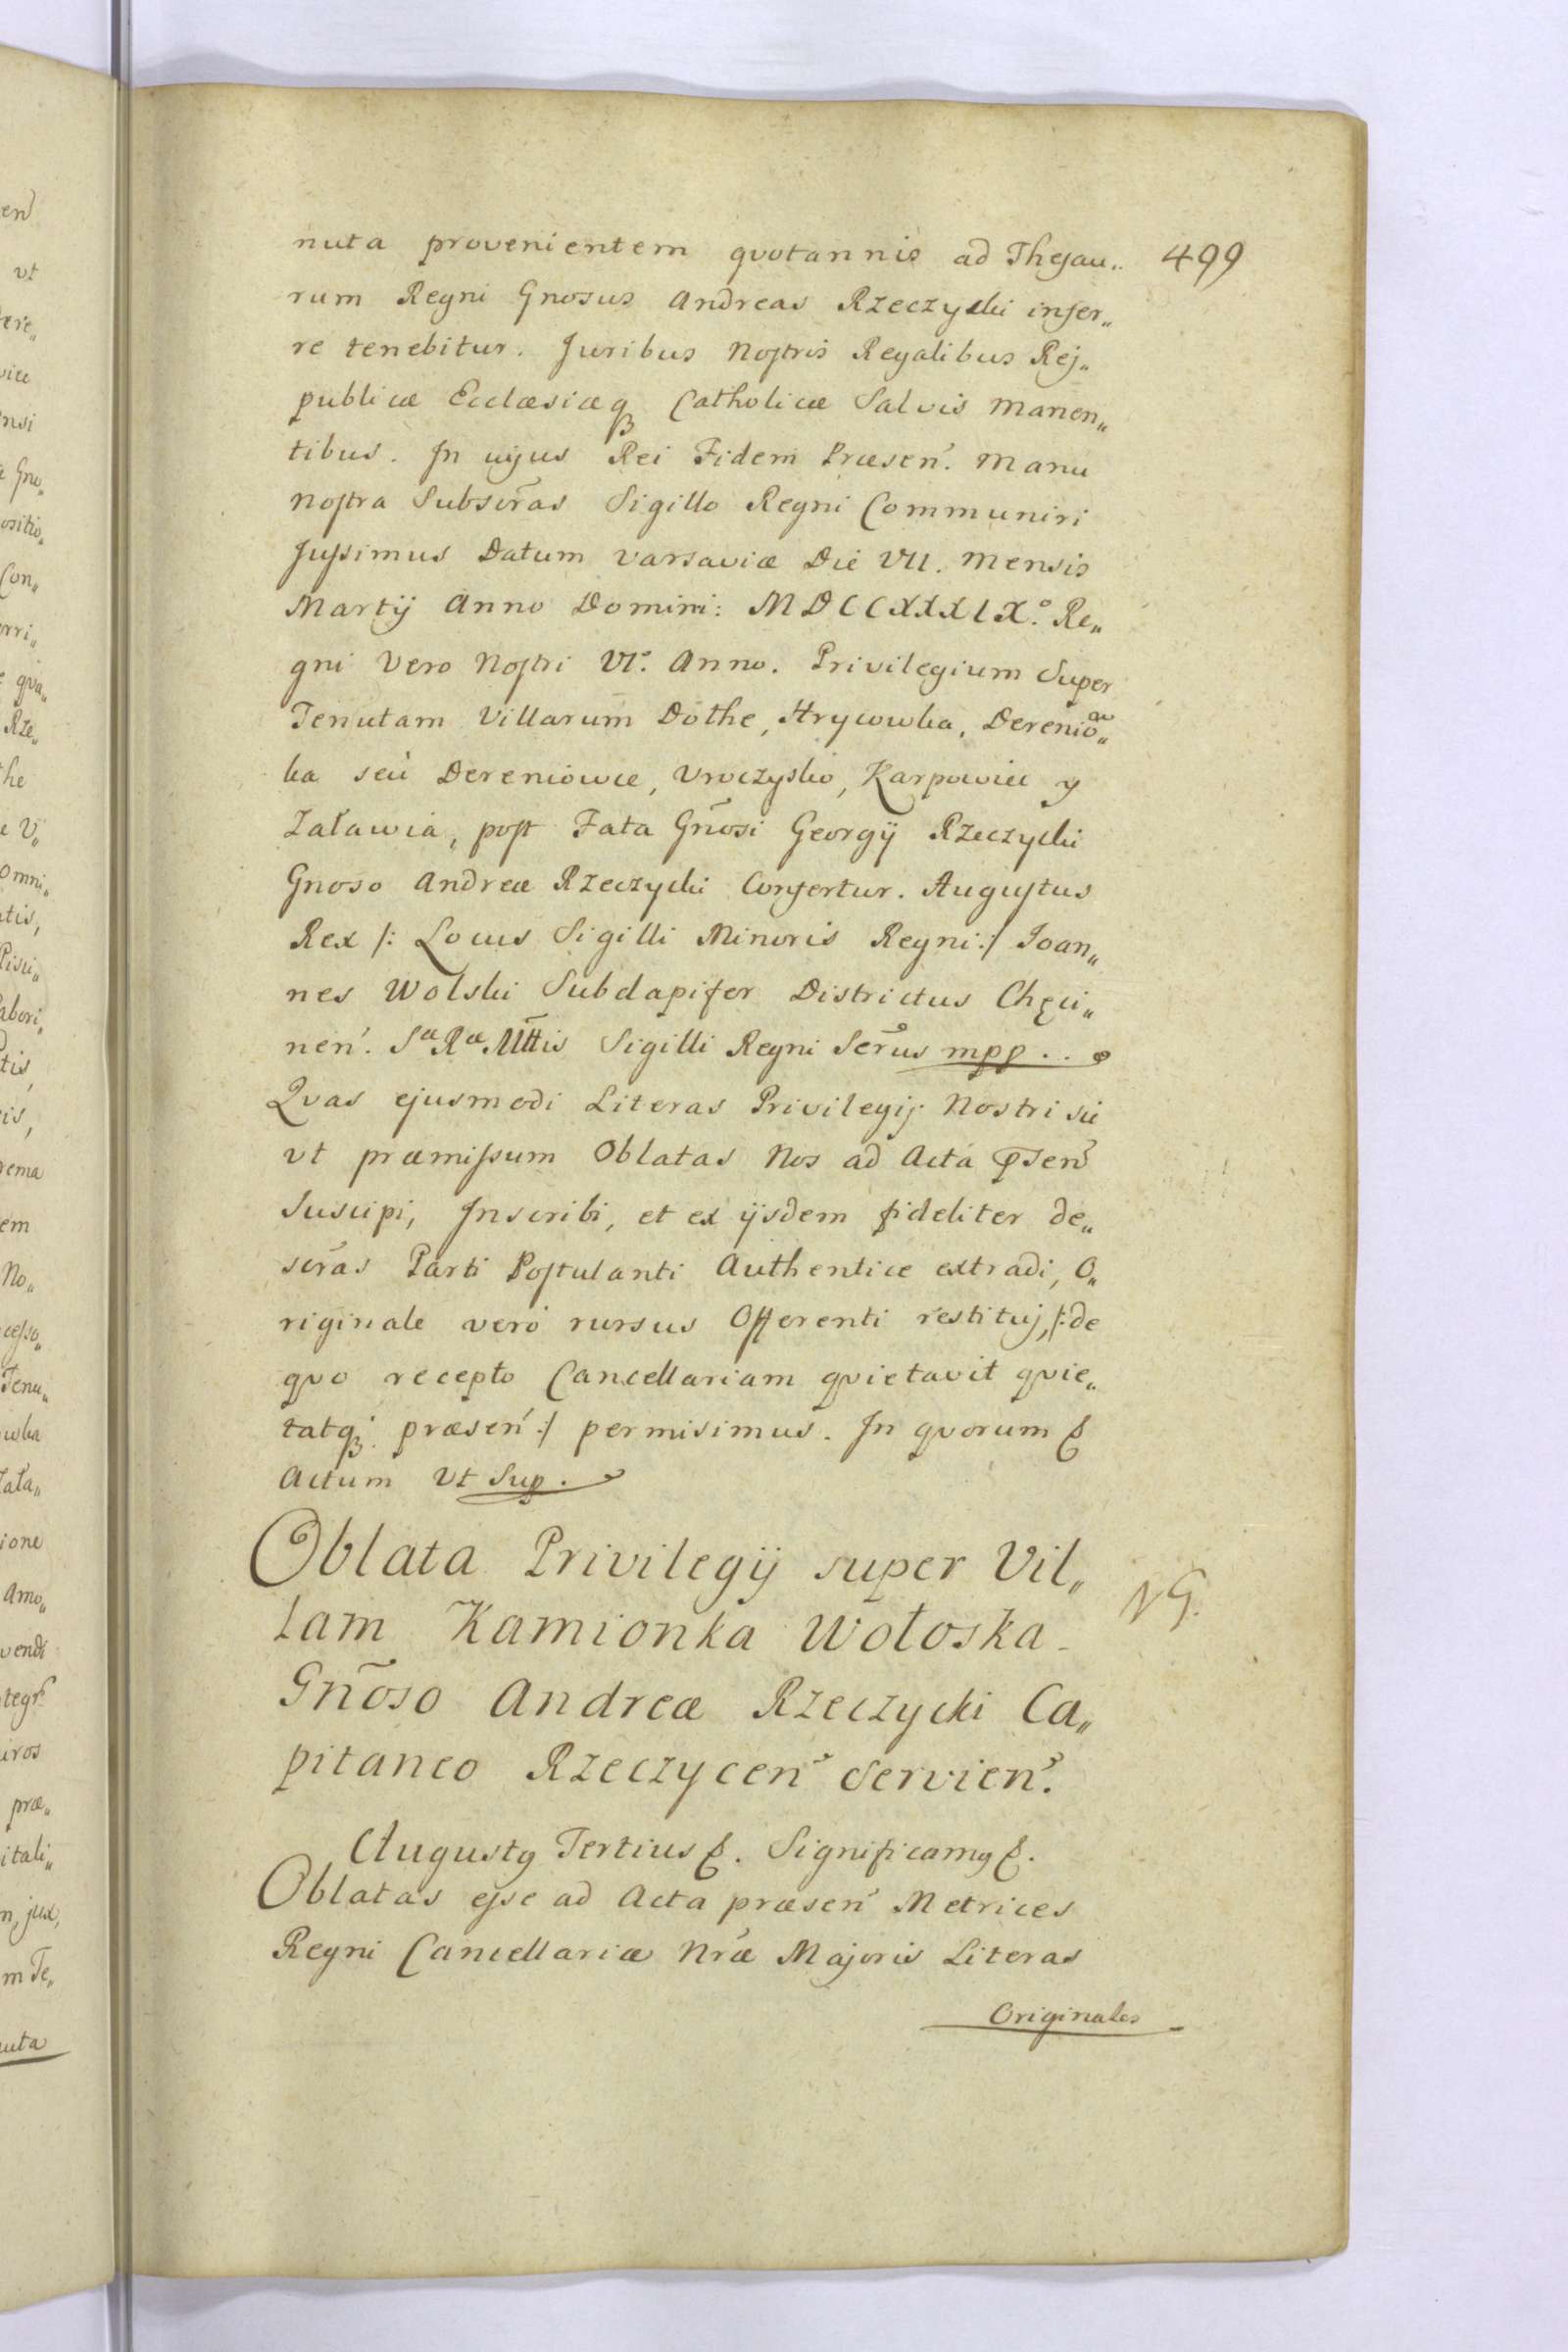 nuta provenientem quotannis ad Thesau„ 499
rum Regni Gnosus Andreas Rzeczycki infer„
re tenebitur. Juribus Nostris Regalibus Rej„
publicæ Ecclæsiæq₃ Catholicæ Salvis manen„
tibus. In cujus Rei Fidem Præsen̄. manu
nostra Subscr̄as Sigillo Regni Communiri
Jussimus Datum Varsaviæ Die VII. mensis
Martij Anno Domini: MDCCXXXIX.° Re„
gni Vero Nostri VI°. Anno. Privilegium Super
Tenutam Villarum Dothe, Hrycowka, Derenio„
ka seù Dereniowce, Uroczysko, Karpowiec y
Załawia, post Fata Gñosi Georgÿ Rzeczycki
Gnoso Andreæ Rzeczycki Confertur. Augustus
Rex /: Locus Sigilli Minoris Regni :/ Joan„
nes Wolski Subdapifer Districtus Chęci„
nen̄. Sæ Ræ Mttis Sigilli Regni Secr̄us mpp..
Quas ejusmodi Literas Privilegij Nostri sic
ut præmissum Oblatas Nos ad Acta p̄sen̄
Suscipi, Inscribi, et ex ijsdem fideliter de„
scr̄as Parti Postulanti Authentice extradi, O„
riginale verò rursus Offerenti restituj, /: de
quo recepto Cancellariam quietavit quie„
tatq₃ præsen̄ :/ permisimus. In quorum &
Actum Ut Sup.
Oblata Privilegij super Vil„
lam Kamionka Wołoska
Gñoso Andreæ Rzeczycki Ca„
pitaneo Rzeczycen̄ Servien̄.
Augustq Tertius &. Significamq &.
Oblatas esse ad Acta præsen̄ Metrices
Regni Cancellariæ Nr̄æ Majoris Literas
Originales